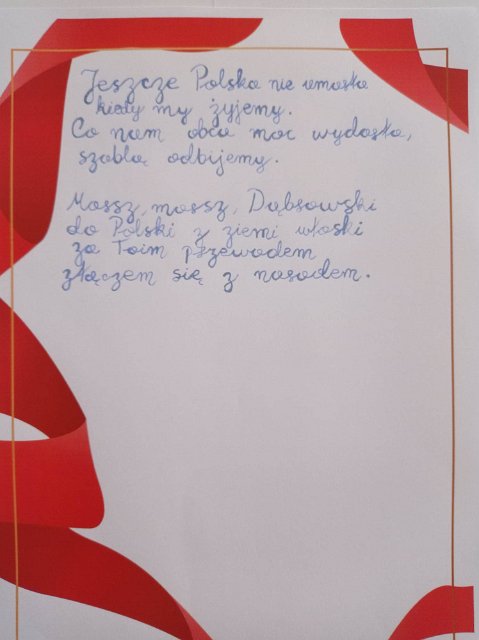 Jeszcze Polska nie umarła
kiedy my żyjemy.
Co nam obca moc wydarła,
szablą odbijemy.
Marsz, marsz, Dąbrowski
do Polski z ziemi włoski
za Toim przewodem
złączem się z narodem.